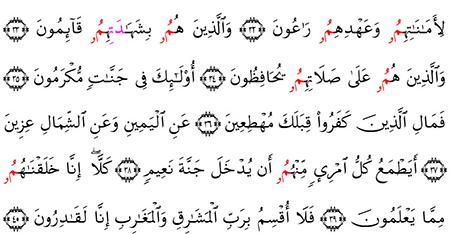 لِأَمَٰنَٰتِهِمُۥ وَعَهْدِهِمُۥ رَٰعُونَ ٣٢ وَٱلَّذِينَ هُمُۥ بِشَهَٰدَتِهِمُۥ قَآئِمُونَ ٣٣
وَٱلَّذِينَ هُمُۥ عَلَىٰ صَلَاتِهِمُۥ يُحَافِظُونَ ٣٤ أُوْلَٰٓئِكَ فِى جَنَّٰتٖ مُّكْرَمُونَ ٣٥
فَمَالِ ٱلَّذِينَ كَفَرُواْ قِبَلَكَ مُهْطِعِينَ ٣٦ عَنِ ٱلْيَمِينِ وَعَنِ ٱلشِّمَالِ عِزِينَ
٣٧ أَيَطْمَعُ كُلُّ ٱمْرِئٖ مِّنْهُمُۥ أَن يُدْخَلَ جَنَّةَ نَعِيمٖ ٣٨ كَلَّآۖ إِنَّا خَلَقْنَٰهُمُۥ
مِّمَّا يَعْلَمُونَ ٣٩ فَلَآ أُقْسِمُ بِرَبِّ ٱلْمَشَٰرِقِ وَٱلْمَغَٰرِبِ إِنَّا لَقَٰدِرُونَ ٤٠